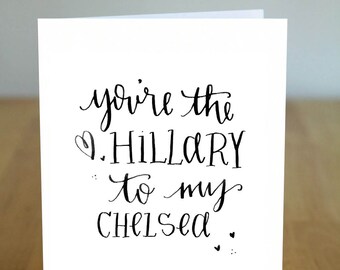 you're the
HILLARY
to my
CHELSEA